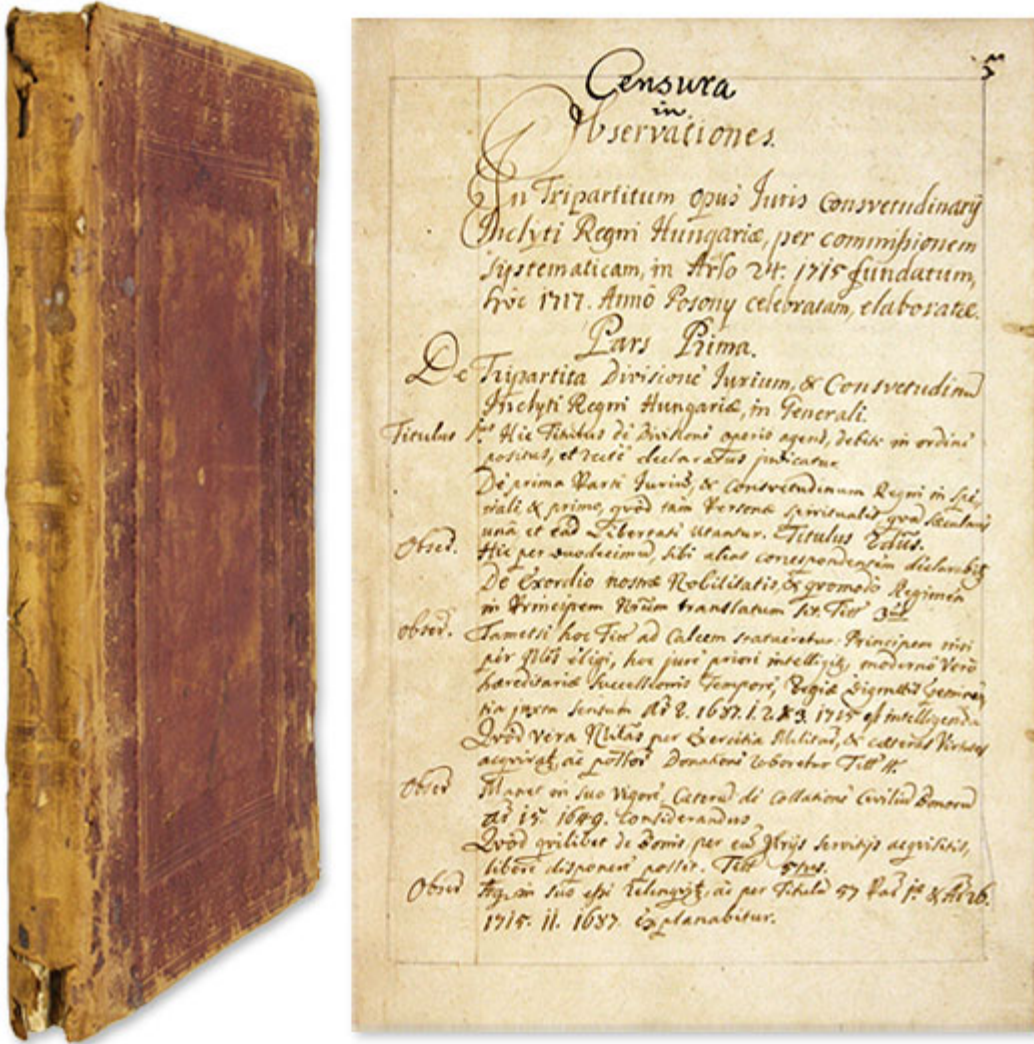 Censura
in
Observationes.
In Tripartitum opus Iuris Consvetudinarÿ
Inclyti Regni Hungariæ, per commissionem
systematicam, in Arlo 24. 1715 fundatum,
hôc 1717. Annô Posony celebratam, elaboratæ.
Pars Prima.
De Tripartita Divisione Iurium, & Consvetudinu
Inclyti Regni Hungariæ, in Generali.
Titulus Hic Titulus de Divisione operis agens, debite in ordine
positus, et recte declaratus judicatur
De prima Parte Iurium, & Consvetudinum Regni in
& primo, quod tam Personæ spirituales, quam sæculares
unâ et Libertate utantur. Titulus 2dus.
Obser. Hic per duodecimum, sibi alias correspondentem
De Exordio nostræ Nobilitatis, & qvomodo Regimen
in Principem translatum sit. Titt 3us
obser. Tametsi hoc Titt ad Calcem statueretur Principem nisi
per eligi, hoc jure priori moderno Vero
hæreditariæ Successionis Tempore, Regiæ
juxta sensum 2. 1687. 1. 2. & 3. 1715 intelligenda
Qvôd vera per Exercitia Militaria, & cæteras Virtutes
ac Donatione roboretur Titt 4.
Obser Manet in suo Vigore, Cæterum de Collatione Bonorum
15. 1649. Considerandus
Qvôd qvilibet de Bonis per servitijs acqvisitis,
libere disponere possit. Titt 5tus.
Obser in suo esse ac per Titulum 57 & 26.
1715. 11. 1687. explanabitur.